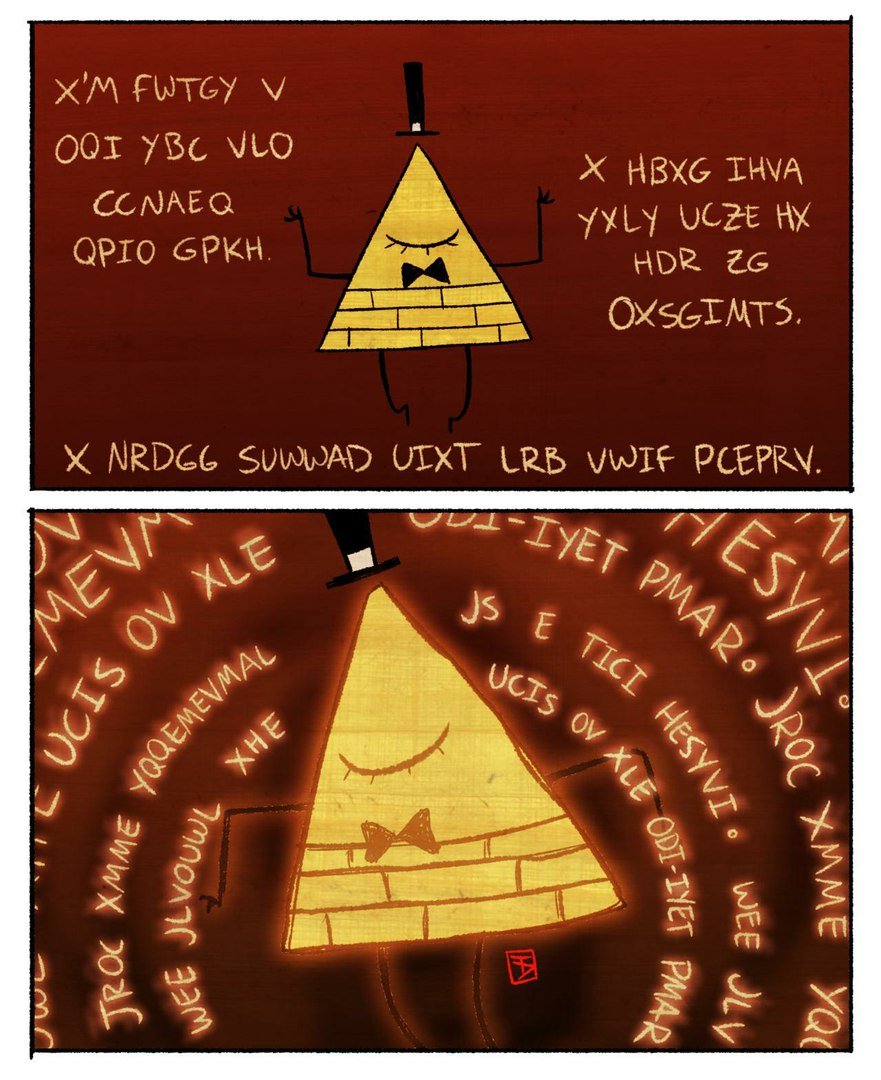 X'M FWTGY V
OQI YBC VLO
CCNAEQ
QPIO GPKH.
X HBXG IHVA
YXLY UCZE HX
HDR ZG
OXSGIMTS.
X NRDGG SUWWAD UIXT LRB VWIF PCEPRV.
MEVM
UCIS OV XLE
ODI-IYET PMAR.
HESYVI.
JROC XMME YQQEMEVMAL
JS E TICI HESYVI.
JROC XMME YQ
WEE JLVOUWL XHE
UCIS OV XLE ODI-IYET PMAR
WEE JLV